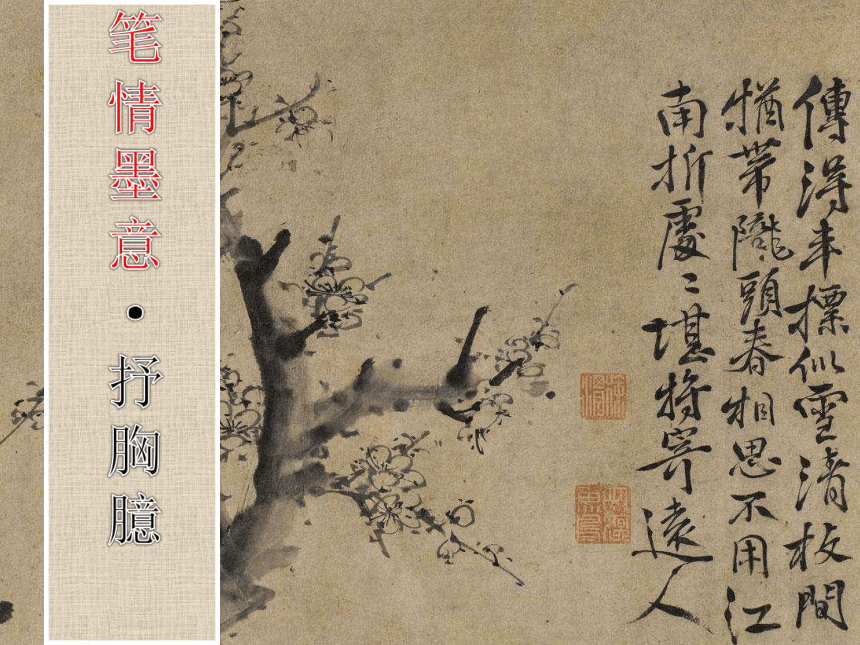 笔情墨意·抒胸臆
傳得丰標似雪清枝間
猶帶隴頭春相思不用江
南折處〻堪將寄遠人